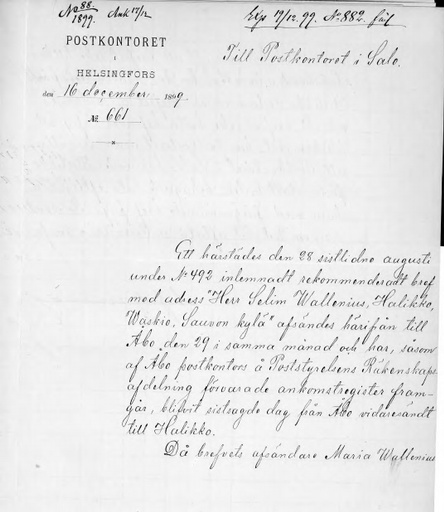 No 88. Ank 17/12
1899.
Exp 19/12.99. No. 882.
POSTKONTORET
i
HELSINGFORS
den 16 december 1899
No 661
Till Postkontoret i Salo.
Ett härstädes den 28 sistlidne augusti
under No 492 inlemnadt rekommenderadt bref
med adress "Herr Selim Wallenius, Halikko,
Waskio, Sauvon kylä" afsändes härifrån till
Åbo den 29 i samma månad och har, såsom
af Åbo postkontors å Poststyrelsens Räkenskaps-
afdelning förvarade ankomstregister fram-
går, blifvit sistsagde dag från Åbo vidaresändt
till Halikko.
Då brefvets afsändare Maria Wallenius